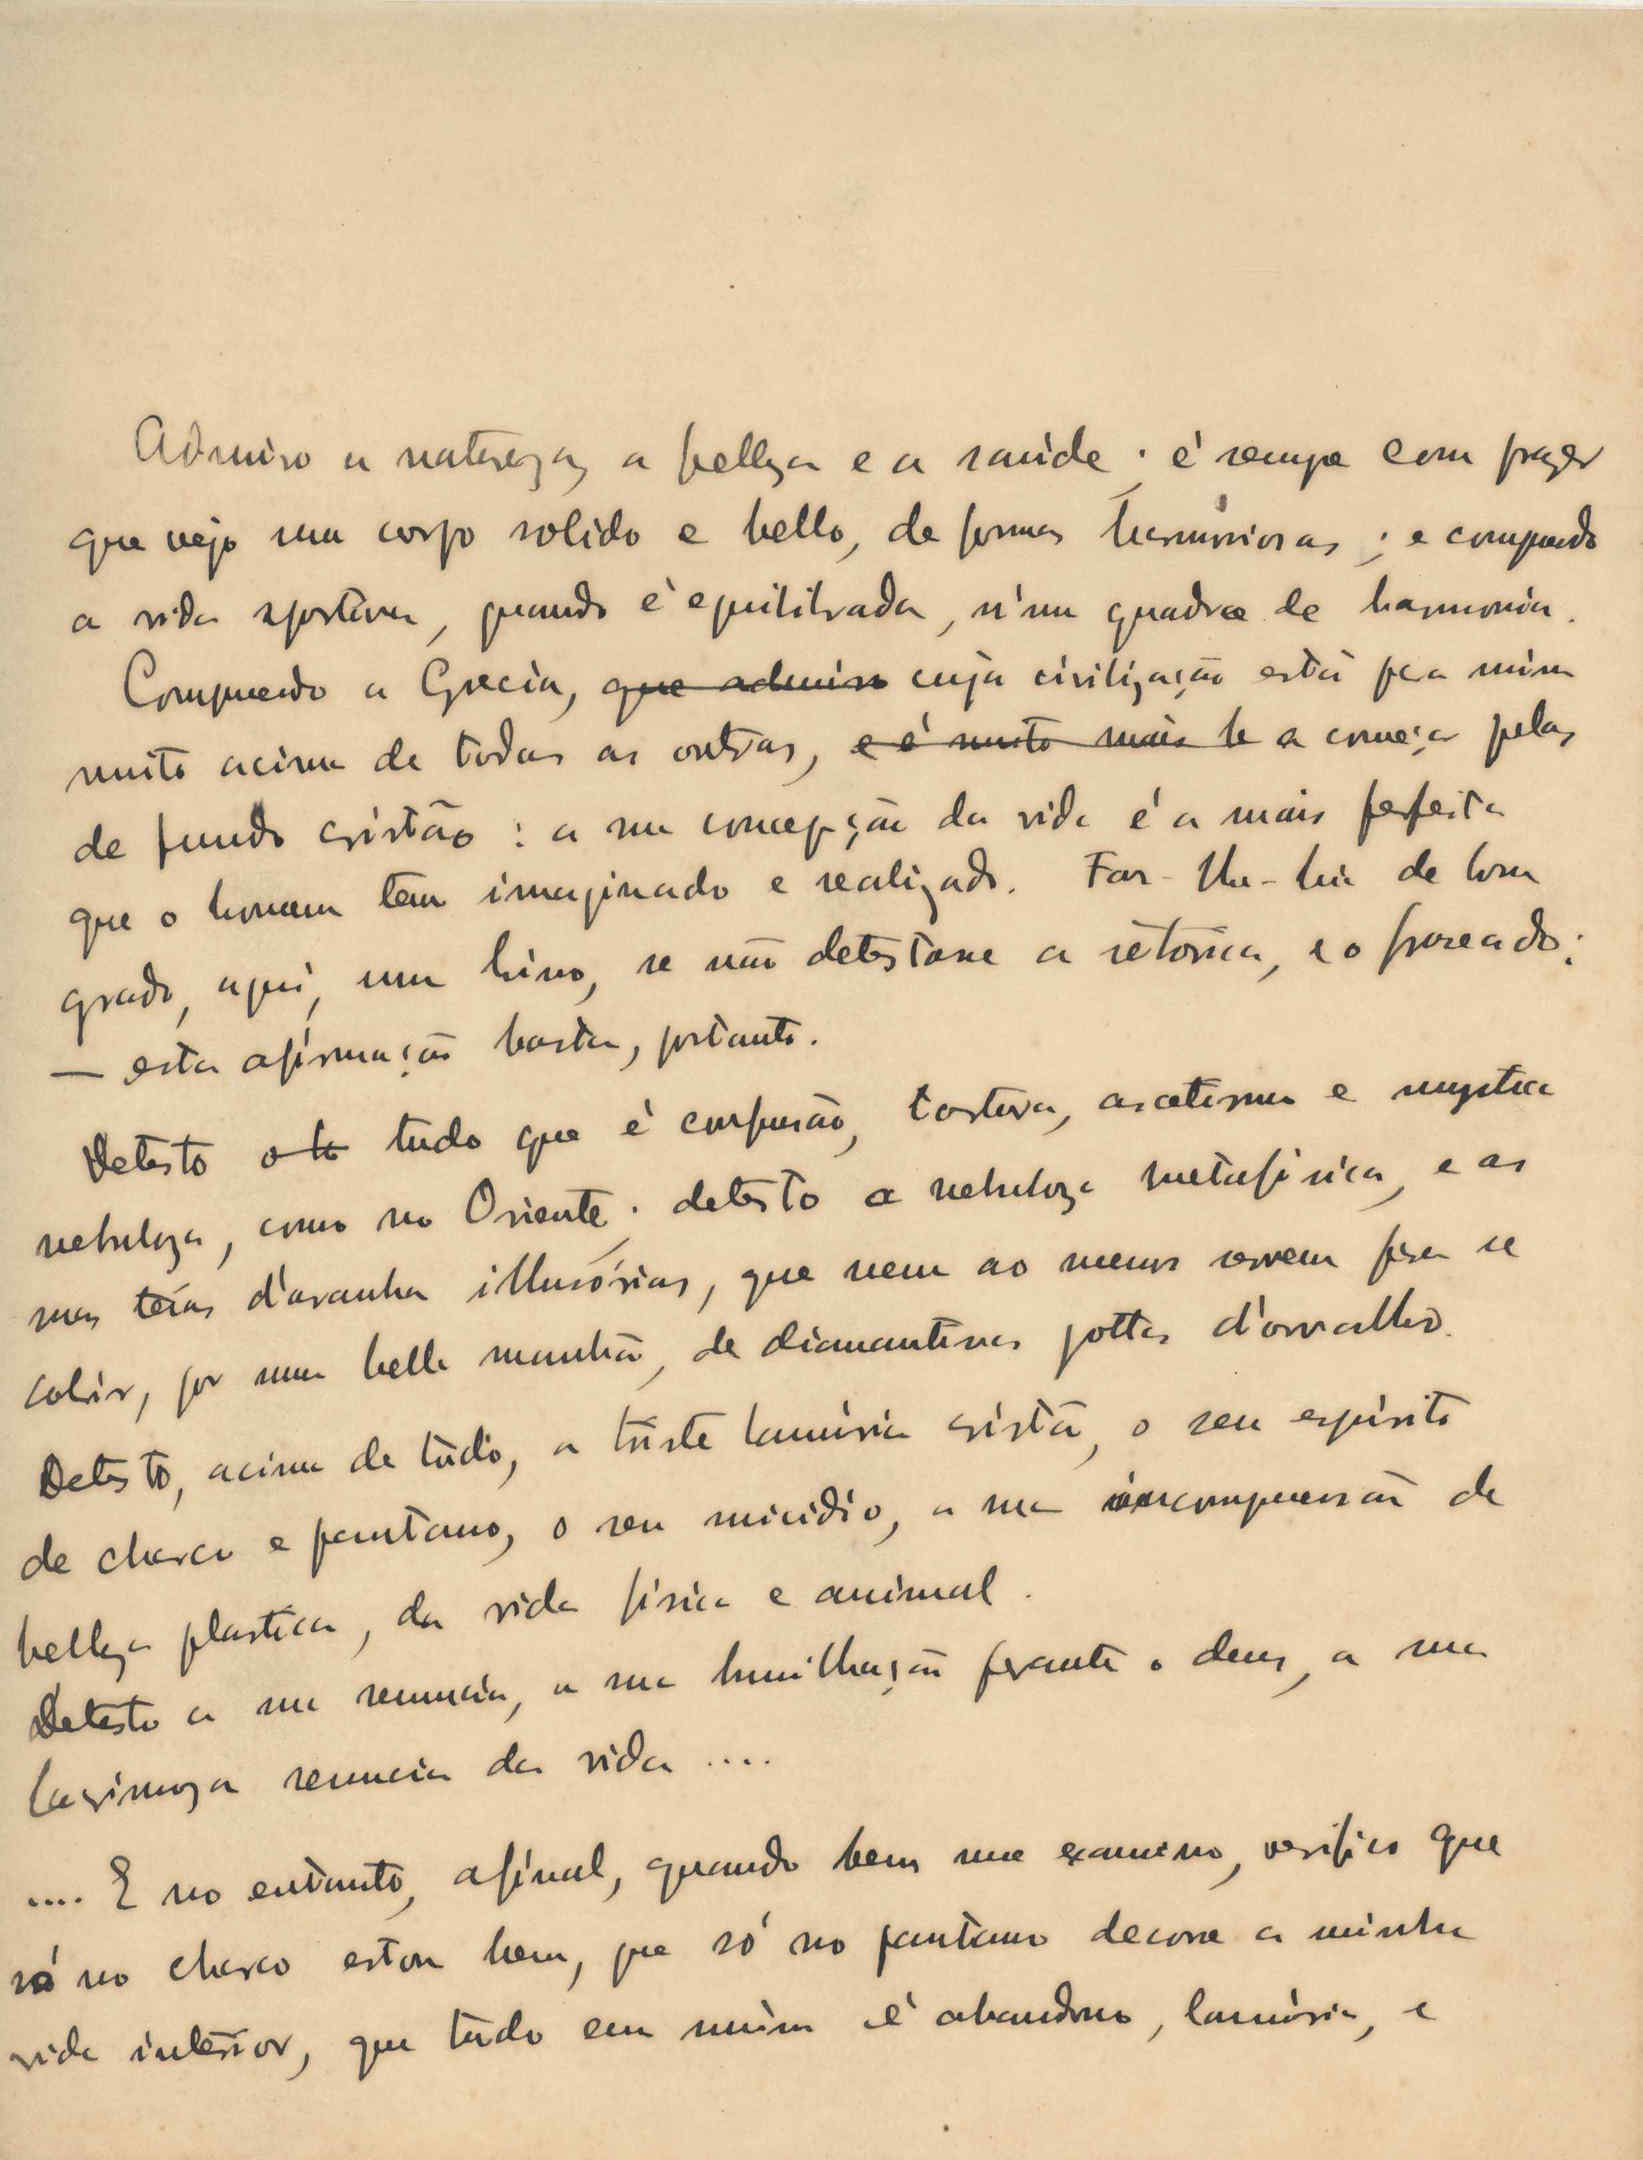 Admiro a natureza, a belleza e a saúde; é sempre com prazer
que vejo um corpo solido e bello, de formas harmóniosas; e comprendo
a vida sportiva, quando é equilibrada, n'um quadro de harmonia.
Comprendo a Grecia, que admiro cuja civilização está pra mim
muito acima de todas as outras, e é muito mais be a começar pelas
de fundo cristão: a sua concepção da vida é a mais perfeita
que o homem tem imaginado e realizado. Far-lhe-hia de bom
grado, aqui, um hino, se não detestasse a rétorica, e o fraseado;
— esta afirmação basta, portanto.
Detesto tudo que é confusão, tortura, ascetismo e mystica
nebuloza, como no Oriente; detesto a nebuloza metafísica, e as
suas teias d'aranha illusórias, que nem ao menos servem para se
cobrir, por uma bella manhã, de diamantinas gottas d'orvalho.
Detesto, acima de tudo, a triste lamúria cristã, o seu espirito
de charco e pantano, o seu suicidio, a sua incomprensão de
belleza plastica, da vida física e animal.
Detesto a sua renuncia, a sua humilhação perante o deus, a sua
lacrimoza renuncia da vida ....
.... E no entanto, afinal, quando bem me examino, verifico que
só no charco estou bem, que só no pantano decorre a minha
vida interior, que tudo em mim é abandono, lamúria, e